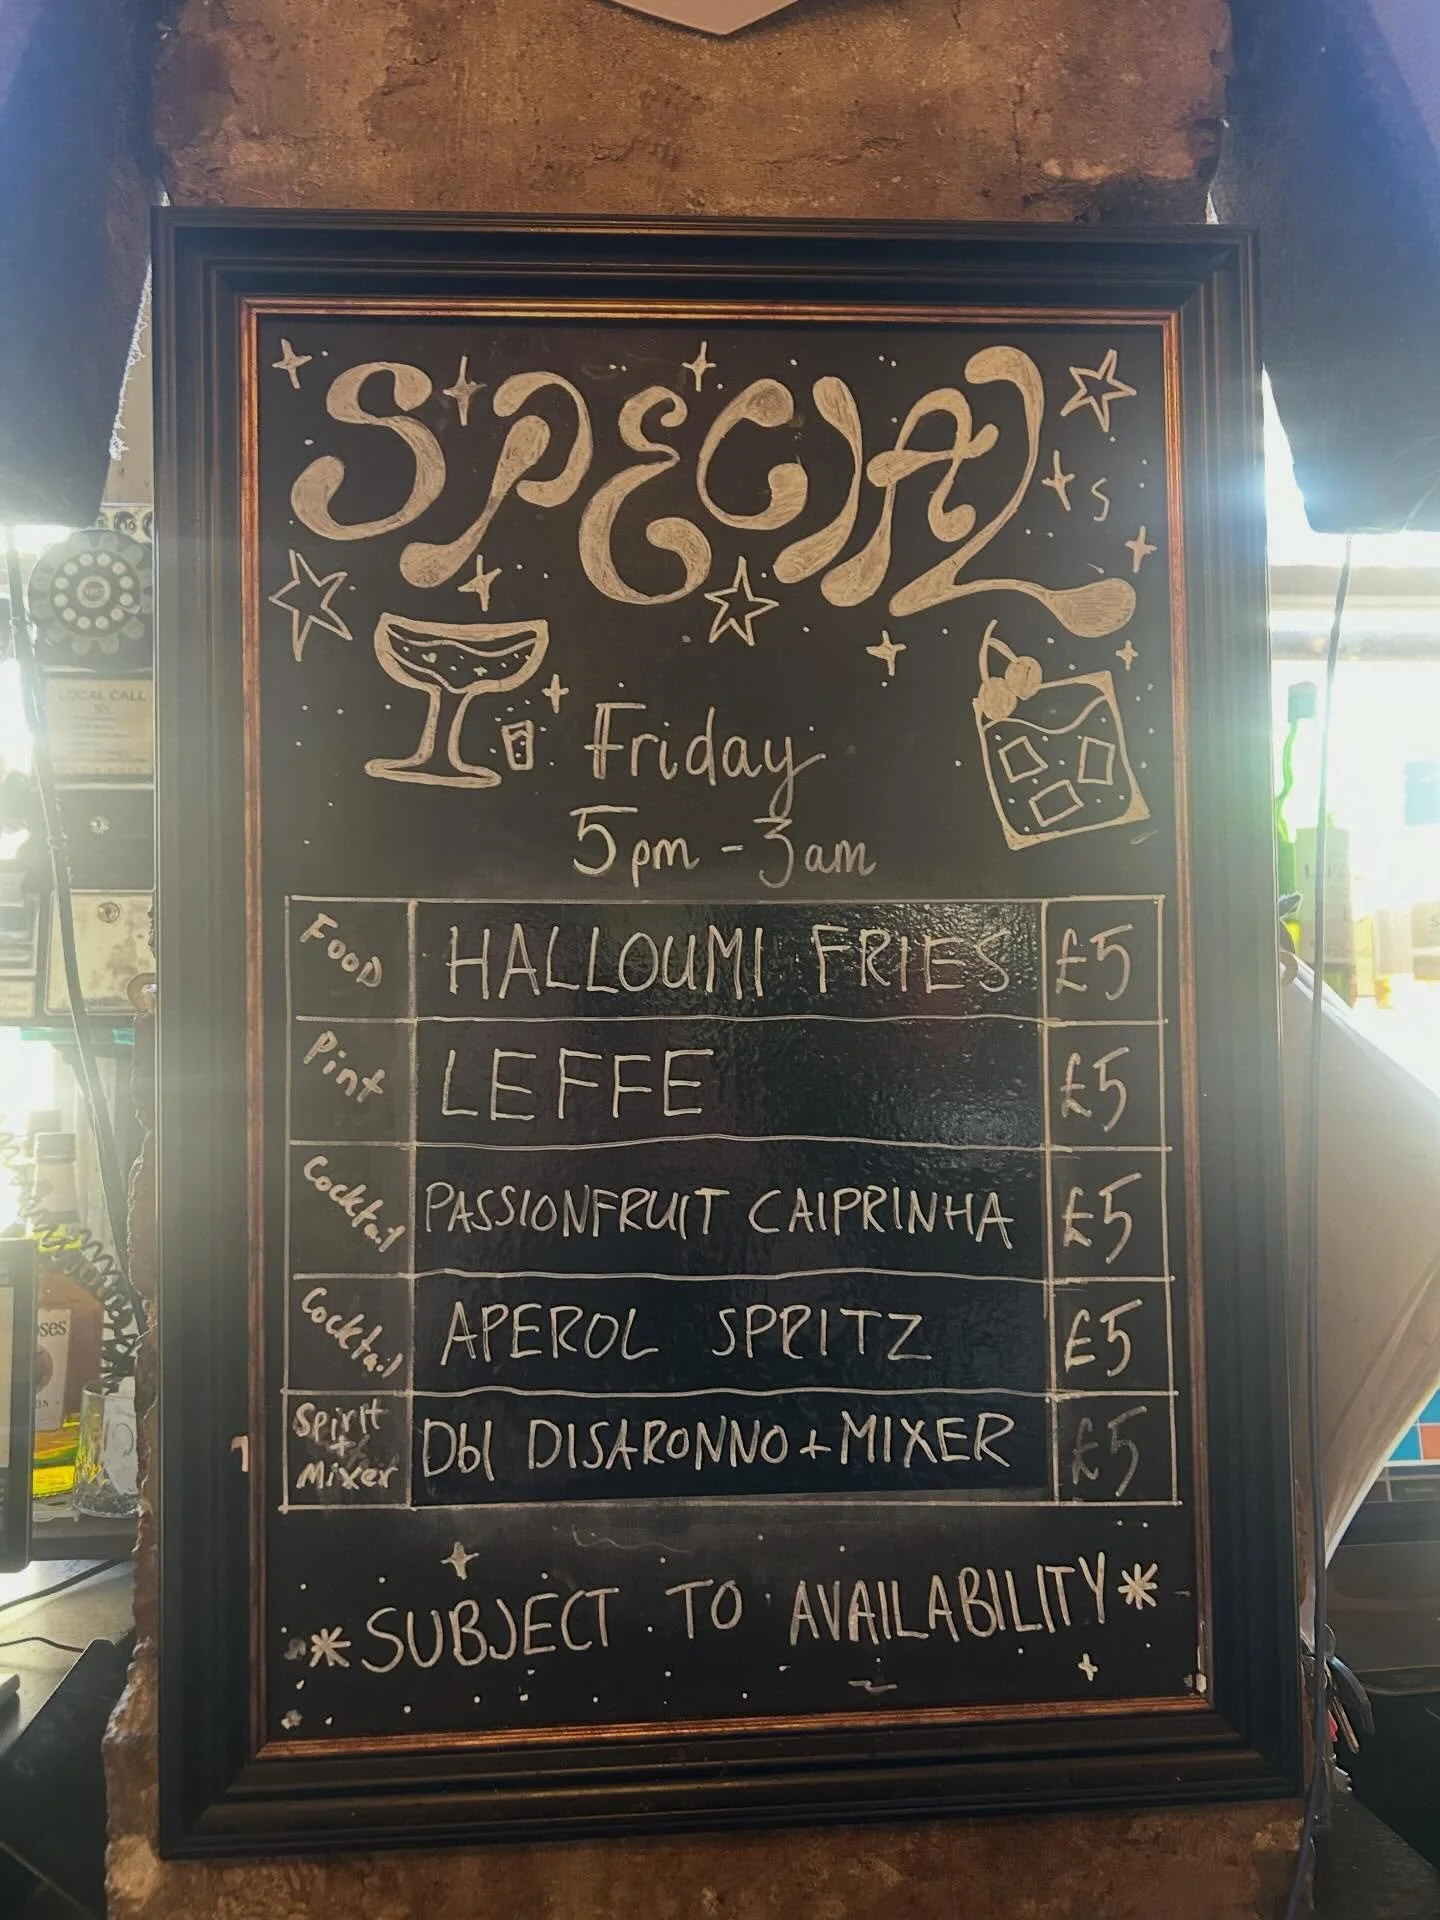 SPECIAL
s
Friday
5pm - 3am
Food HALLOUMI FRIES £5
Pint LEFFE £5
Cocktail PASSIONFRUIT CAIPRINHA £5
Cocktail APEROL SPRITZ £5
Spirit + Mixer Dbl DISARONNO + MIXER £5
*SUBJECT TO AVAILABILITY*
LOCAL CALL